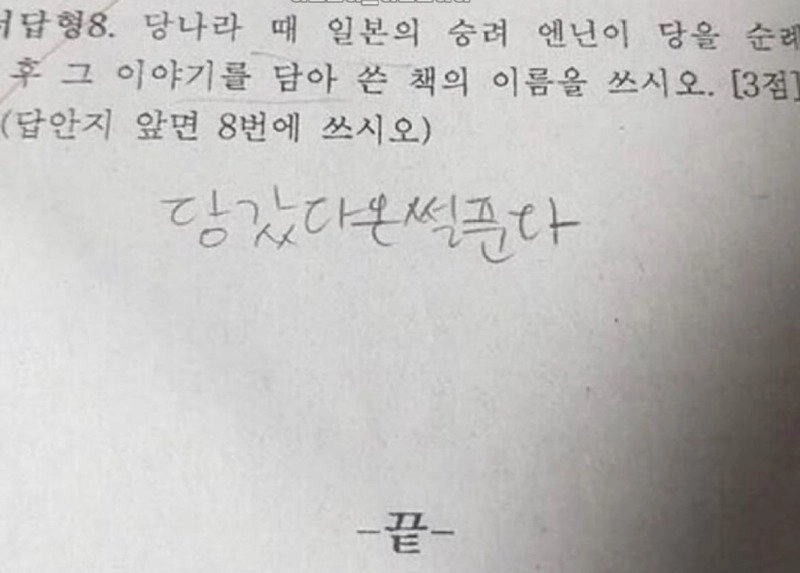 서답형8. 당나라 때 일본의 승려 엔닌이 당을 순례
후 그 이야기를 담아 쓴 책의 이름을 쓰시오. [3점]
(답안지 앞면 8번에 쓰시오)
당갔다온썰푼다
-끝-